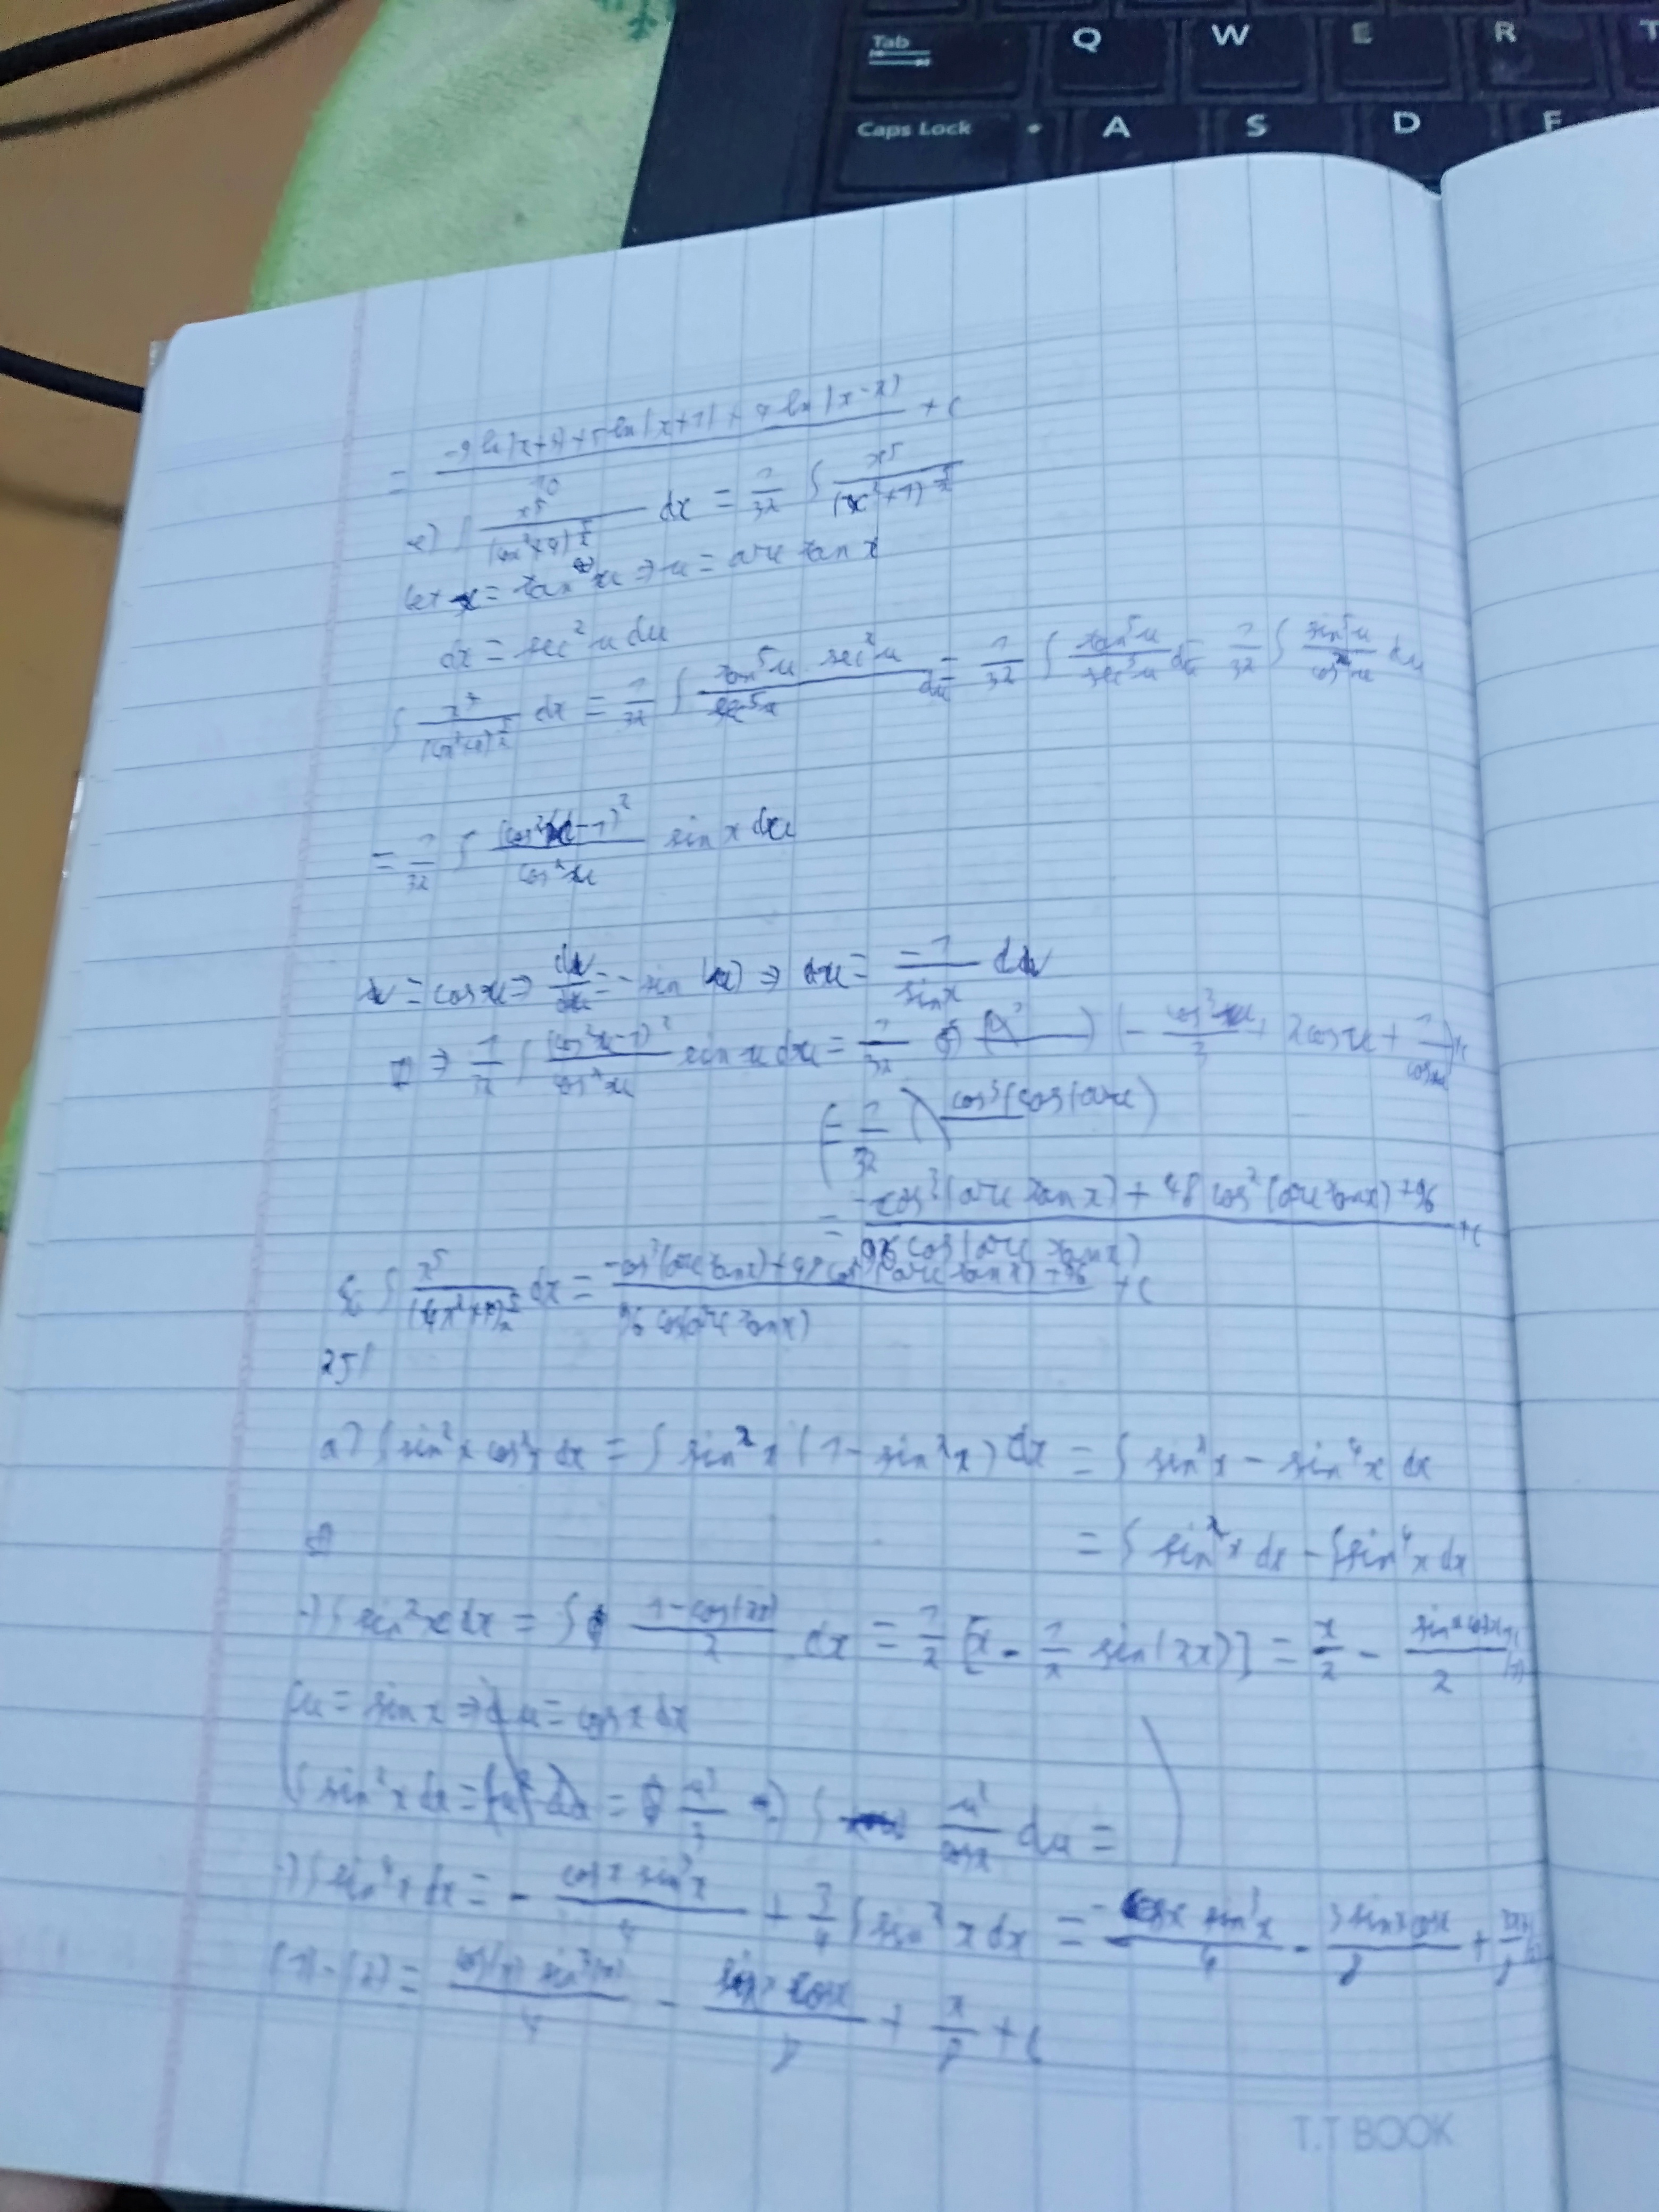 Tab Q W E R T
Caps Lock A S D F
= (-9 ln|x+4| + 5 ln|x+1| + 4 ln|x-2|)/10 + c
e) ∫ x⁵/(4x²+4)^(5/2) dx = 1/32 ∫ x⁵/(x²+1)^(5/2)
let x = tan u ⇒ u = arc tan x
dx = sec² u du
∫ dx = 1/32 ∫ (tan⁵u sec²u)/(sec⁵u) du = 1/32 ∫ tan⁵u/sec³u du = 1/32 ∫ sin⁵u/cos²u du
= 1/32 ∫ (cos²u-1)²/cos²u sin x du
v = cos u ⇒ dv/du = -sin(u) ⇒ du = -1/sin x dv
⇒ 1/32 ∫ (cos²u-1)²/cos²u sin u du = 1/32 (- cos³u/3 + 2cos u + 1/cos u)
= 1/32 cos³(cos(arc)
= (-cos³(arc tan x) + 48 cos²(arc tan x) + 96)/(96 cos(arc tan x)) + c
∫ x⁵ dx = (-cos³(arc tan x) + 48 cos²(arc tan x) + 96)/(96 cos(arc tan x)) + c
25/
a) ∫ sin²x cos²x dx = ∫ sin²x (1 - sin²x) dx = ∫ sin²x - sin⁴x dx
= ∫ sin²x dx - ∫ sin⁴x dx
-) ∫ sin²x dx = ∫ (1-cos(2x))/2 dx = 1/2 [x - 1/2 sin(2x)] = x/2 - sin x cos x/2 (1)
(u = sin x ⇒ du = cos x dx
∫ sin²x dx = ∫ u² dx = u³/3 ∫ u²/cos x du = )
-) ∫ sin⁴x dx = - cos x sin³x/4 + 3/4 ∫ sin²x dx = -cos x sin³x/4 - 3 sin x cos x/8 + 3x/8
(1) - (2) = cos(x) sin³(x)/4 - sin x cos x/8 + x/8 + c
T.T BOOK